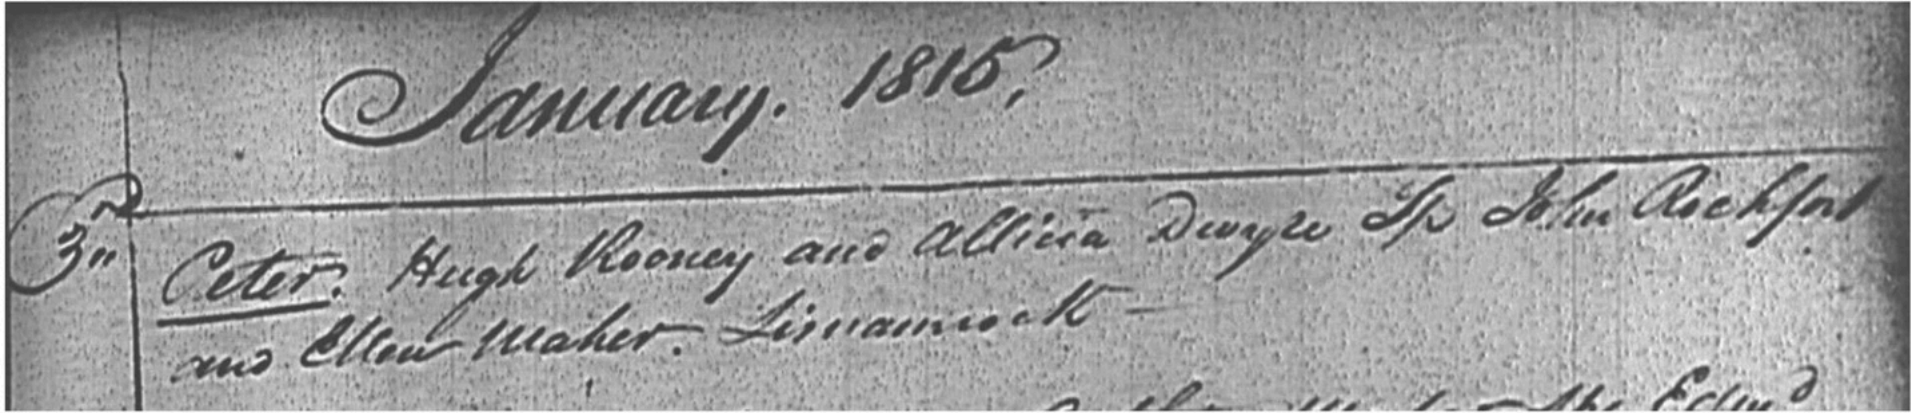 January. 1815,
3rd Peter. Hugh Rooney and Allicia Dwyre Sp John Rochfort
and Ellen Maher. Lisnamrock —
Edmd